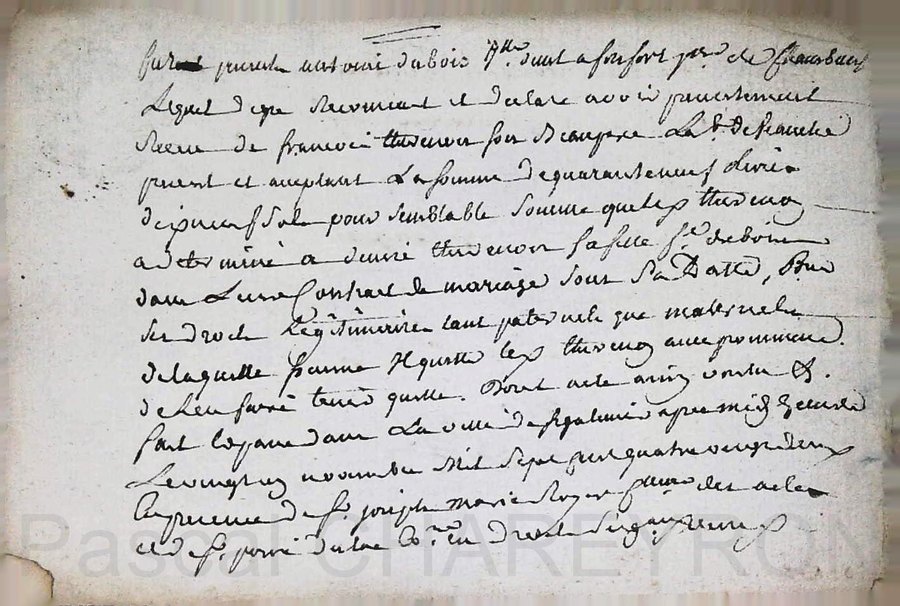 furent present antoine dubois htt. dunt a fonfort psse de Chambeuf
Lequel depe Reconnait et declare avoir presentement
Receu de francois thevenon son Beaupere La de
present et acceptant La somme dequaranteneuf Livres
dixneuf Sols pour semblable Somme queled. thevenon
a determiné a thevenon sa fille fe. dubois
dans Leur Contrat de mariage sous Sa Datte, Pour
Ses droits Legitimaires tant paternels que maternels
de laquelle somme Il quitte led. thevenon avec promesse
de Len faire tenir quitte. Dont acte ainsy voulu &.
fait et passé dans La ville de apres midy
Le vingt novembre Mil Sept Cent quatre vingt deux
En presence de Sr. joseph marie Royer des actes
et de Sr. pierre dulac en droit Soussignés
Pascal CHAREYRON